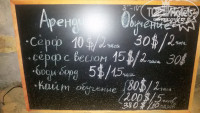 Аренда Обучение
• Сёрф 10$/2часа 30$/2часа
• сёрф с веслом 15$/2часа 30$
• Боди борд 5$/1час
• Кайт обучение 80$/2часа
200$/5
380$/